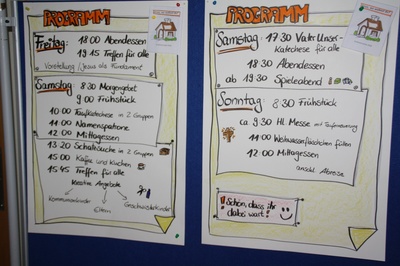 PROGRAMM
Freitag: 18 00 Abendessen
19 45 Treffen für alle
Vorstellung / Jesus als Fundament
Samstag 8 30 Morgengebet
9 00 Frühstück
10 00 Taufkatechese in 2 Gruppen
11 00 Namenspatrone
12 00 Mittagessen
13 20 Schatzsuche in 2 Gruppen
15 00 Kaffee und Kuchen
15 45 Treffen für alle
kreative Angebote
Kommunionkinder
Eltern
Geschwisterkinder
PROGRAMM
Samstag: 17 30 Vater-Unser-
Katechese für alle
18 30 Abendessen
ab 19 30 Spieleabend
Sonntag: 8 30 Frühstück
ca. 9 30 Hl. Messe mit Tauferneuerung
11 00 Weihwasserfläschchen füllen
12 00 Mittagessen
anschl. Abreise
! Schön, dass ihr
dabei wart !